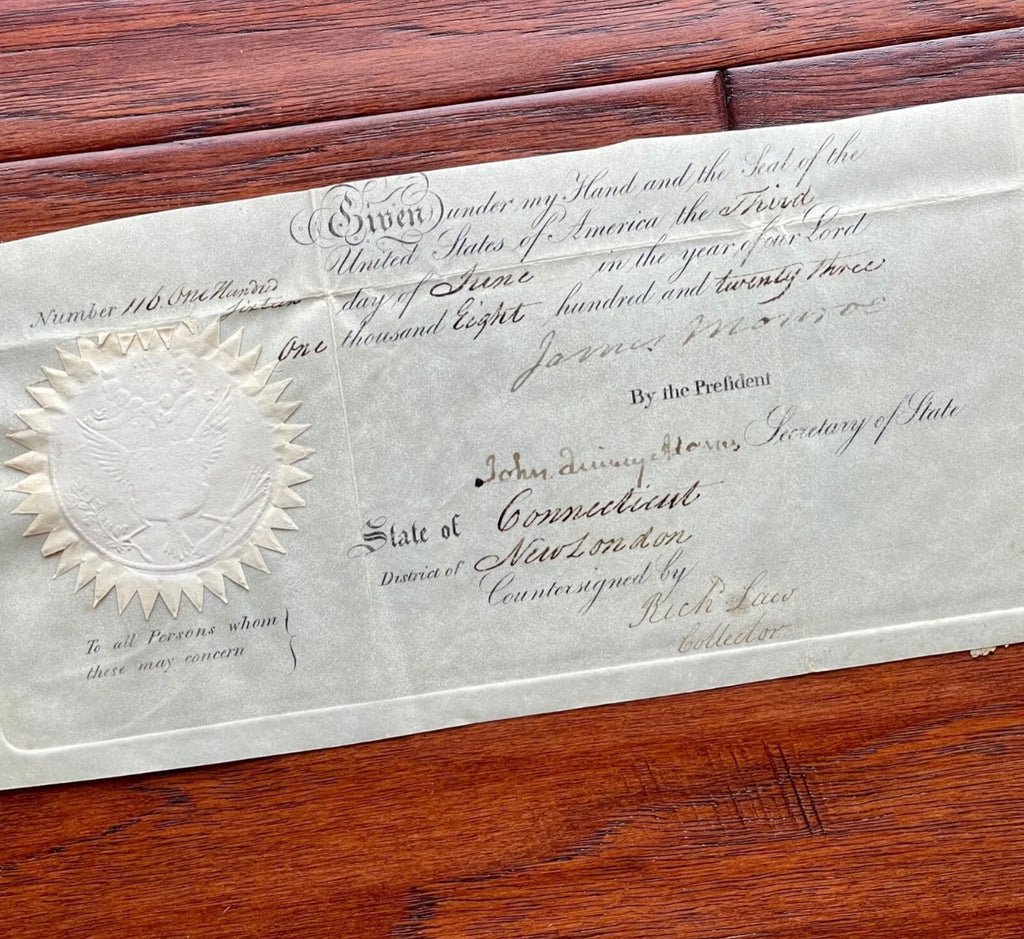 Given under my Hand and the Seal of the
United States of America, the Third
day of June in the year of our Lord
One thousand Eight hundred and twenty three
Number 116. One Hundred
Sixteen
James Monroe
By the Preſident
John Quincy Adams, Secretary of State
State of Connecticut
District of New London
Countersigned by
Richd Law
Collector
To all Persons whom
these may concern